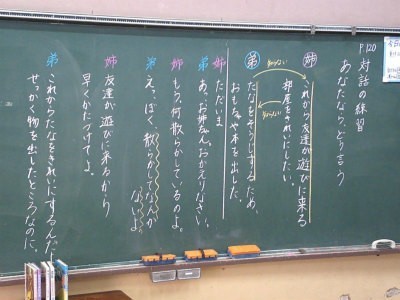 P120 対話の練習
あなたなら、どう言う
姉 これから友達が遊びに来る
部屋をきれいにしたい。
知らない
知らない
弟 たなをそうじするため、
おもちゃや本を出した。
姉 ただいま
弟 あ、お姉ちゃん、おかえりなさい。
姉 もう、何散らかしているのよ。
弟 えっ、ぼく、散らかしてなんか
ないよ。
姉 友達が遊びに来るから
早くかたづけてよ。
弟 これからたなをきれいにするんだ。
せっかく物を出したところなのに。